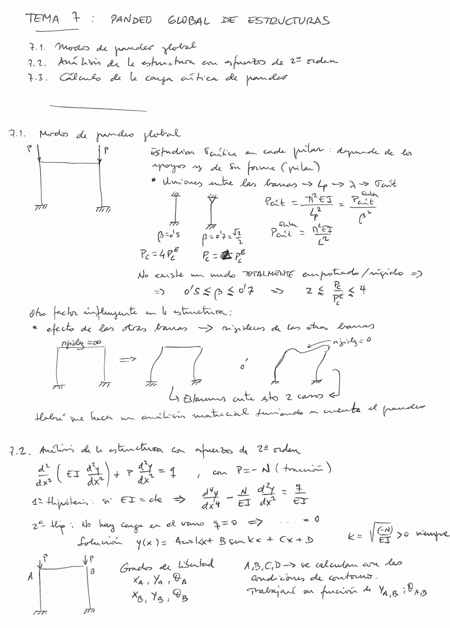 TEMA 7 : PANDEO GLOBAL DE ESTRUCTURAS
7.1. Modos de pandeo global
7.2. Análisis de la estructura con esfuerzos de 2º orden
7.3. Cálculo de la carga crítica de pandeo
7.1. Modos de pandeo global
P P
Estudiar σcrítica en cada pilar: depende de los
apoyos y de su forma (pilar)
* Uniones entre las barras → Lp → λ → σcrit
Pcrit = π²EI / Lp² = Pcrit Euler / β²
β=0'5 β=0'7=√2/2
Pcrit Euler = π²EI / L²
Pc=4PcE Pc=2PcE
No existe un nudo TOTALMENTE empotrado/rígido =>
=> 0'5 ≤ β ≤ 0'7 => 2 ≤ Pc/PcE ≤ 4
Otro factor influyente en la estructura:
* efecto de las otras barras → rigideces de las otras barras
rigidez=∞ => ó rigidez=0
↳ Estaremos entre estos 2 casos
Habrá que hacer un análisis matricial teniendo en cuenta el pandeo
7.2. Análisis de la estructura con esfuerzos de 2º orden
d²/dx² (EI d²y/dx²) + P d²y/dx² = q , con P=-N (tracción)
1ª Hipótesis: si EI=cte => d⁴y/dx⁴ - N/EI d²y/dx² = q/EI
2ª Hip: No hay carga en el vano q=0 => ...... = 0
Solución y(x) = A cos kx + B sen kx + Cx + D
K = √((-N)/EI) > 0 siempre
P P
A B
Grados de libertad
xA, yA, θA
xB, yB, θB
A,B,C,D → se calculan con las
condiciones de contorno.
Trabajaré en función de yA,B ; θA,B